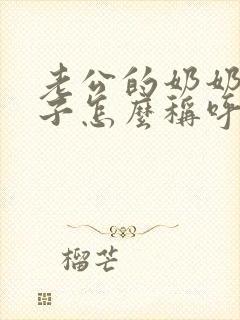 老公的奶奶
子怎麼稱呼
榴芒